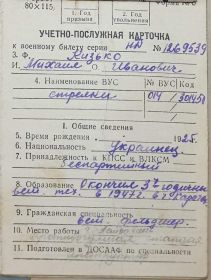 80×115
1. Год призыва
2. Год увольнения
УЧЕТНО-ПОСЛУЖНАЯ КАРТОЧКА
к военному билету серии НД № 269539
3. Ф. Кизько
И. Михаил О. Иванович
4. Наименование ВУС № ВУС Код
стрелки 014
1. Общие сведения
5. Время рождения 1925.
6. Национальность украинец
7. Принадлежность к КПСС и ВЛКСМ
беспартийный
8. Образование Окончил 3х годичный
вет. тех. в 1947 г. в г.
9. Гражданская специальность
вет. фельдшер.
10. Место работы
11. Подготовлен в ДОСААФ по специальности